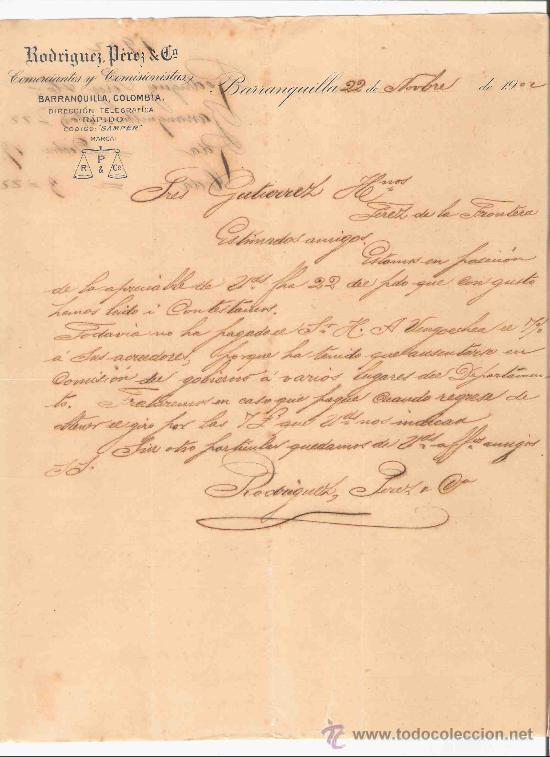 Rodriguez, Pérez & Cª
Comerciantes y Comisionistas,
BARRANQUILLA, COLOMBIA.
DIRECCIÓN TELEGRAFICA
RÁPIDO
CÓDIGO: "SAMPER"
MARCA:
P
R & Cº
Barranquilla 22 de Novbre de 1902
Sres Gutierrez Hnos
Jerez de la Frontera
Estimados amigos
Estamos en posesión
de la apreciable de Vds fha 22 del pdo que con gusto
hemos leido i contestamos.
Todavia no ha pagado el Sr H. A. el
á sus acredores, porque ha tenido que ausentarse en
Comisión del gobierno á varios lugares del Departamen-
to. Trataremos en caso que pague cuando regrese de
el giro por las que Vds nos indican
Sin otro particular quedamos de Vds affmos amigos
SS.
Rodriguez, Perez & Ca
www.todocoleccion.net